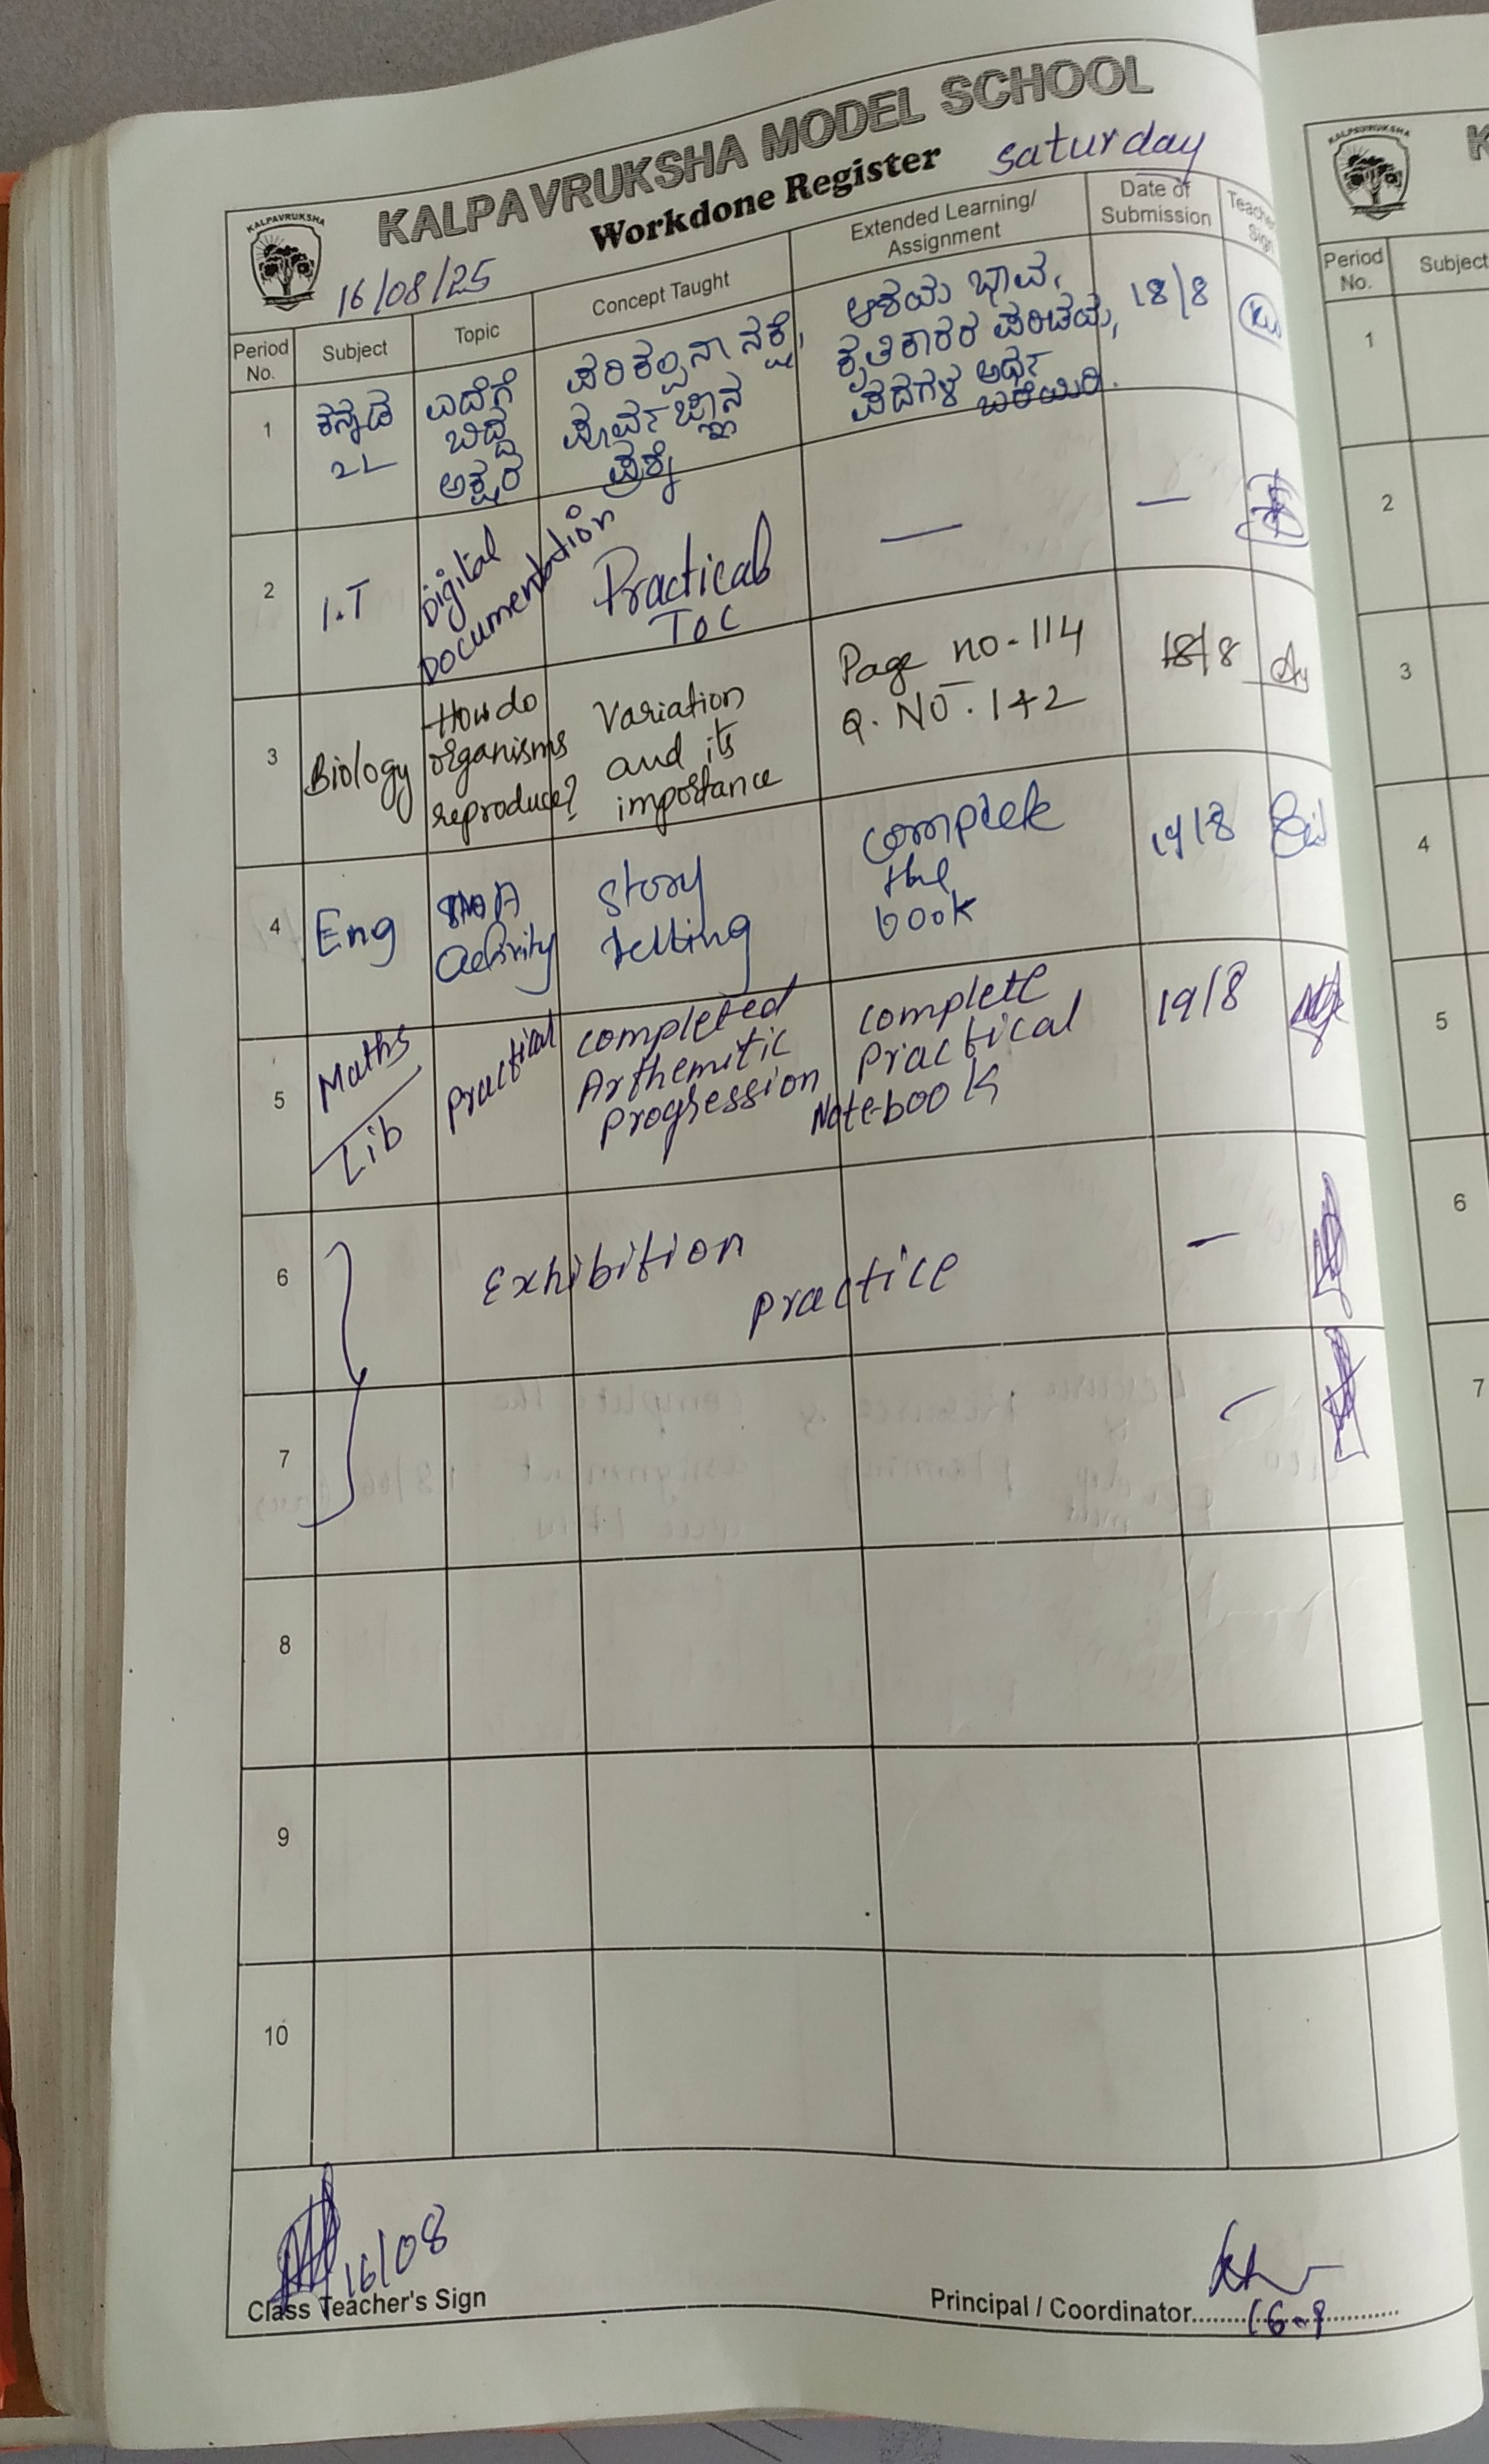 KALPAVRUKSHA
KALPAVRUKSHA MODEL SCHOOL
Workdone Register
saturday
16/08/25
Period No.
Subject
Topic
Concept Taught
Extended Learning/ Assignment
Date of Submission
Teacher Sign
1
ಕನ್ನಡ
2L
ಎದೆಗೆ
ಬಿದ್ದ
ಅಕ್ಷರ
ಪರಿಕಲ್ಪನಾ ನಕ್ಷೆ,
ಪೂರ್ವಜ್ಞಾನ
ಪ್ರಶ್ನೆ
ಆಶಯ ಭಾವ,
ಕೃತಿಕಾರರ ಪರಿಚಯ,
ಪದಗಳ ಅರ್ಥ
ಬರೆಯಿರಿ.
18/8
2
I.T
Digital
Documentation
Practical
TOC
—
—
3
Biology
How do
organisms
reproduce?
Variation
and its
importance
Page no-114
Q. NO. 1+2
18/8
4
Eng
Activity
Story
telling
complete
the
book
19/8
5
Maths
Lib
Practical
completed
Arthemitic
Progression
complete
Practical
Notebook
19/8
6
Exhibition
practice
—
7
—
8
9
10
16/08
Class Teacher's Sign
Principal / Coordinator
KALPAVRUKSHA
K
Period No.
Subject
1
2
3
4
5
6
7